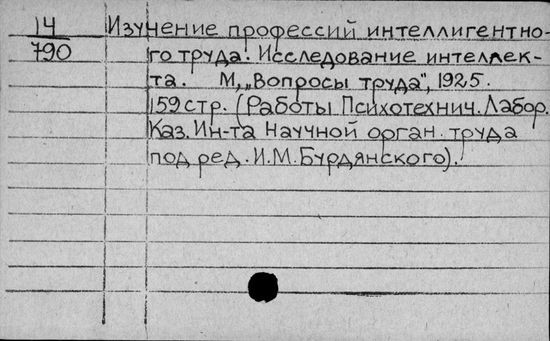 14 Изучение профессий интеллигентно-
790 го труда. Исследование интеллек-
та. М, „Вопросы труда", 1925.
159 стр. (Работы Психотехнич. Лабор.
Каз. Ин-та научной орган. труда
под ред. И.М. Бурдянского).